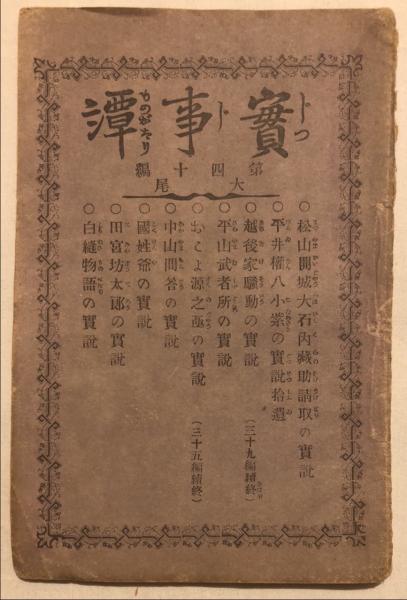 實事譚
じつじものがたり
第四十編
大尾
○松山開城大石內藏助請取の實說
○平井權八小紫の實說拾遺
○越後家騷動の實說(三十九編續終)
○平山武者所の實說
○おこよ源之亟の實說(三十五編續終)
○中山問答の實說
○國姓爺の實說
○田宮坊太郎の實說
○白縫物語の實說